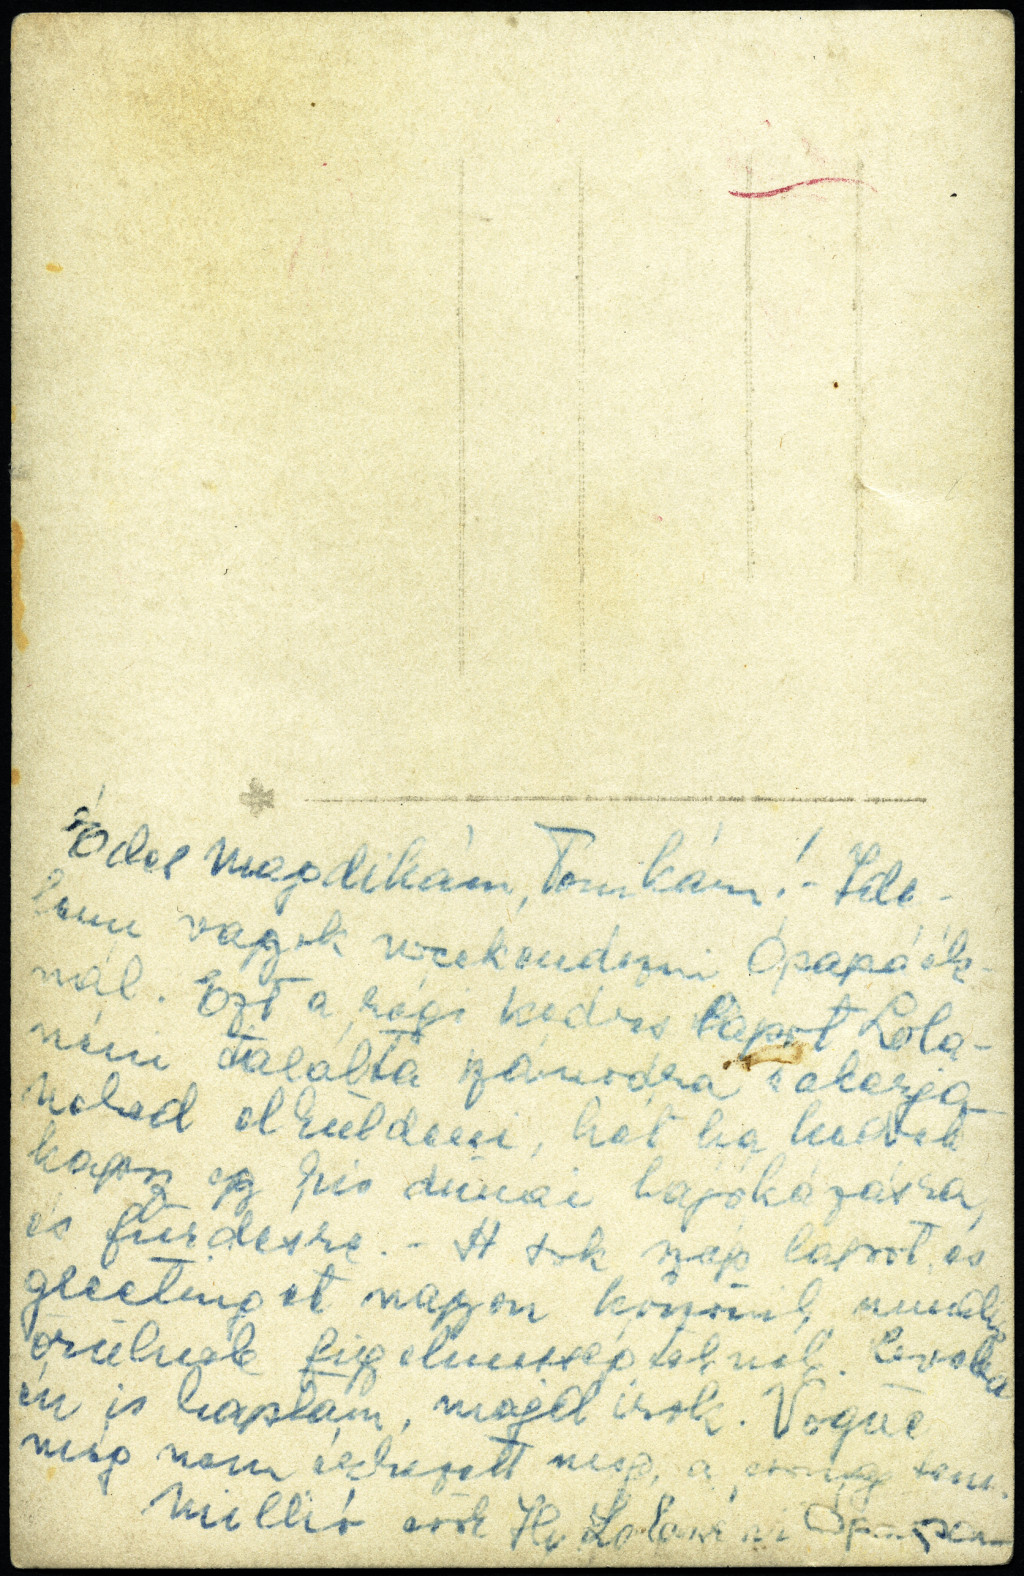 Édes Magdikám, Tomikám! - Ide-
lenn vagyok weekendezni Ópapáék-
nál. Ezt a régi kedves lapot Lola-
néni találta számodra s akarja
Neked elküldeni, hát ha kedvet
kapsz egy kis dunai hajókázásra,
és fürdésre. - A sok szép lapot és
greetinget nagyon köszönik, mindig
örülnek figyelmességteknek.
én is kaptam, majd írok. Vogue
még nem érkezett meg, a sem.
Millió csók Lolanéni Ópapa